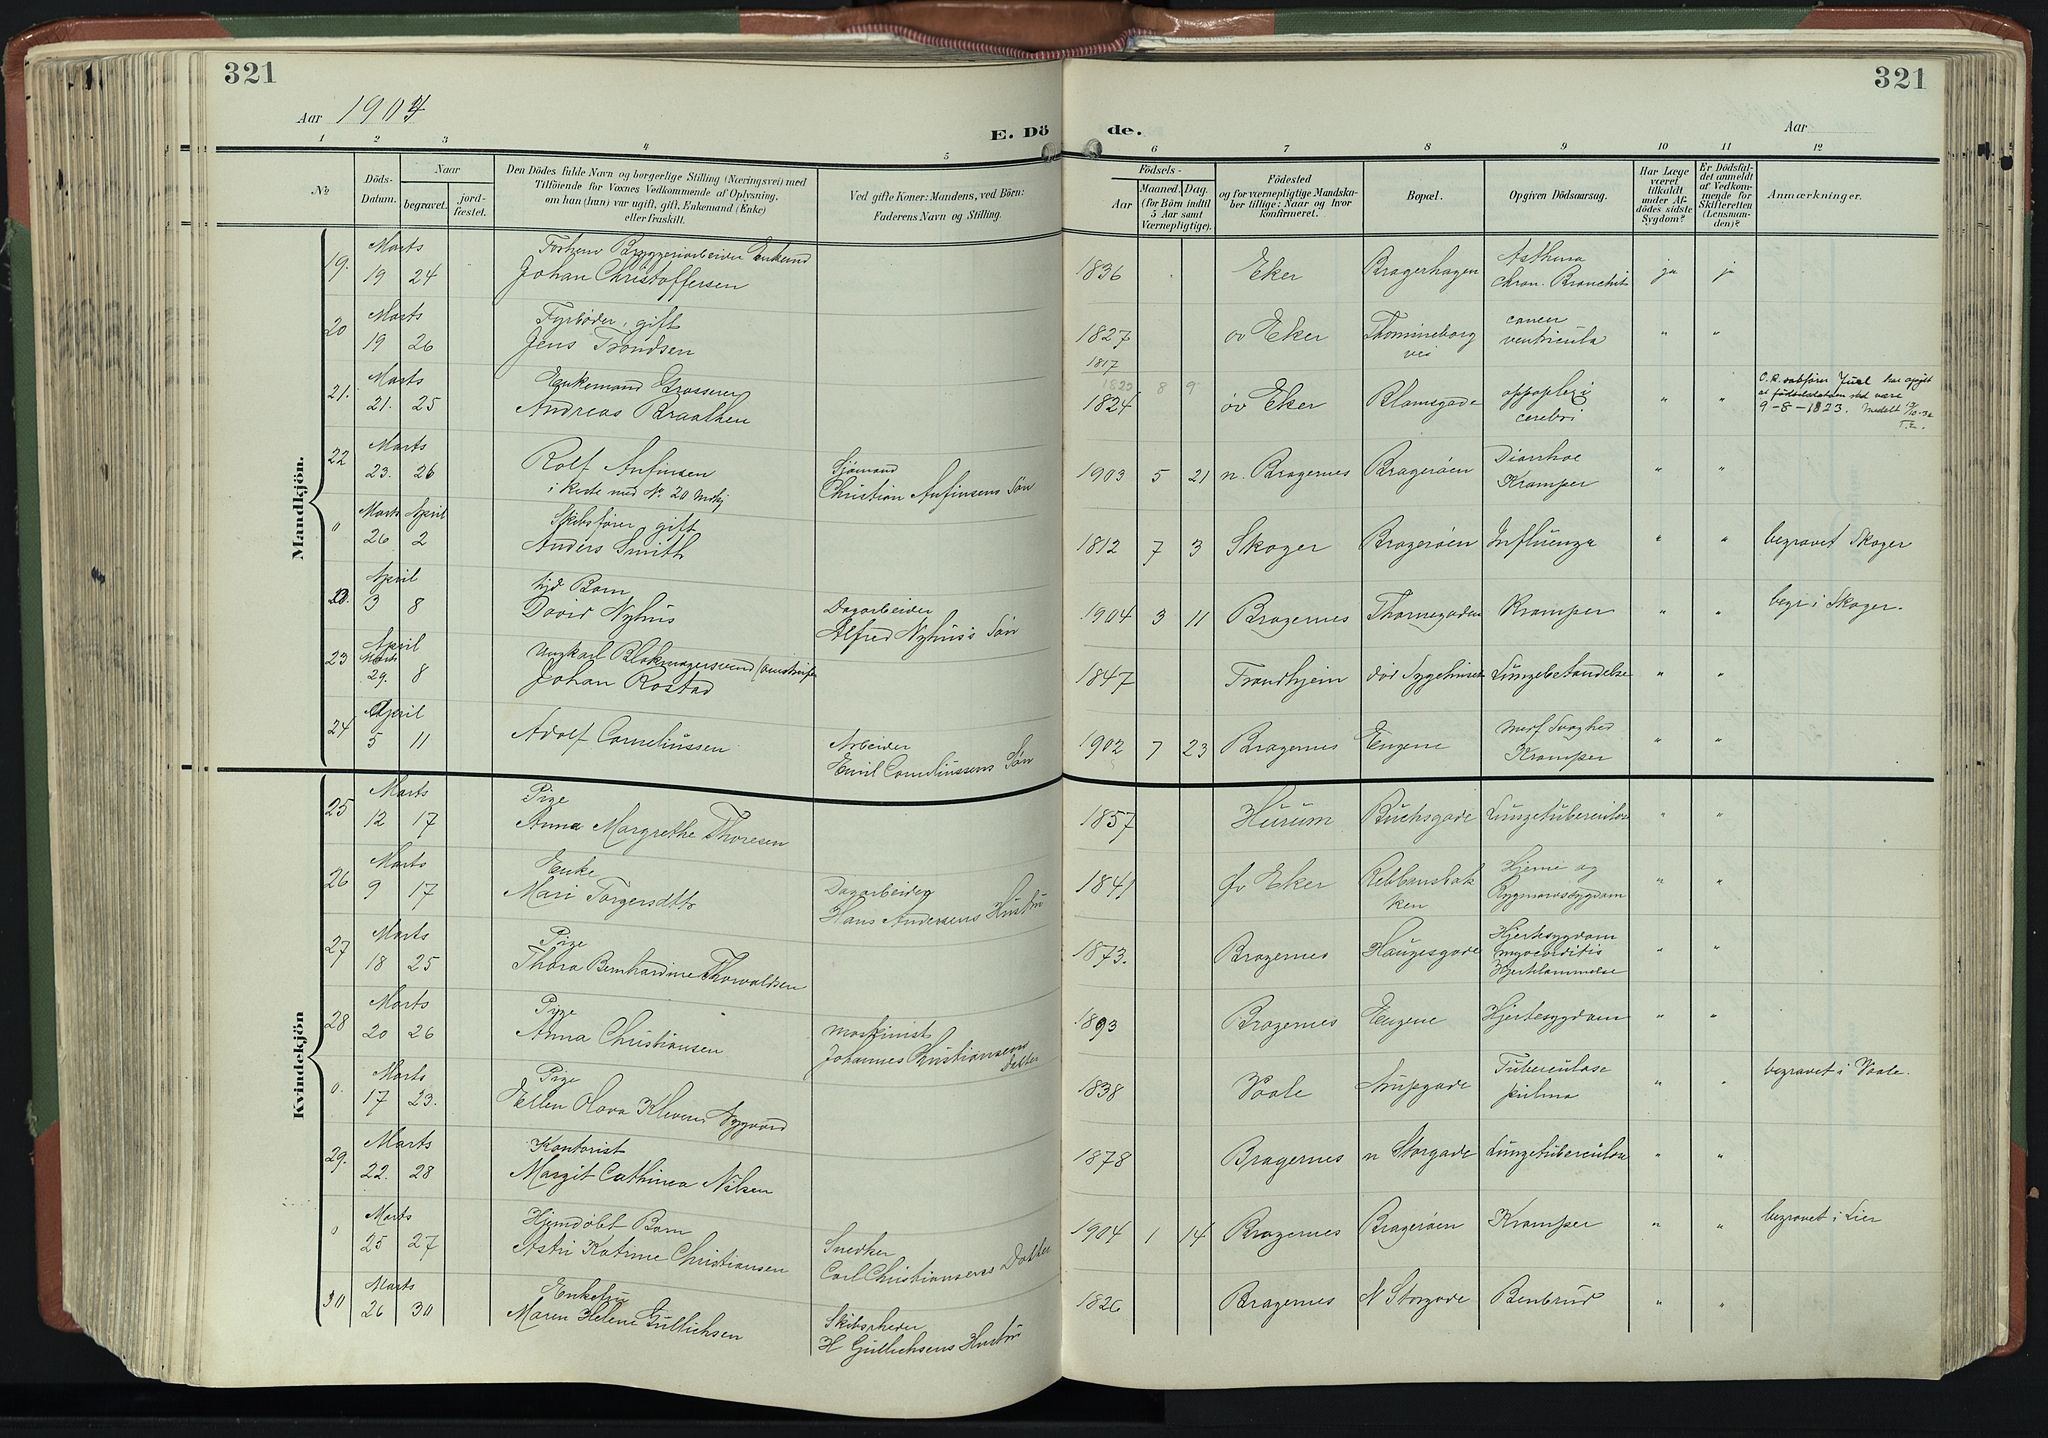 321
321
Aar 1904
E. Döde.
Aar
1 2 3 4 5 6 7 8 9 10 11 12
No
Döds-Datum.
Naar
begravet.
jord-fæstet.
Den Dödes fulde Navn og borgerlige Stilling (Næringsvei) med
Tilföiende for Voxnes Vedkommende af Oplysning,
om han (hun) var ugift, gift, Enkemand (Enke)
eller fraskilt.
Ved gifte Koner: Mandens, ved Börn:
Faderens Navn og Stilling.
Födsels-
Aar
Maaned. Dag.
(for Börn indtil
5 Aar samt
Værnepligtige).
Födested
og for værnepligtige Mandska-
ber tillige: Naar og hvor
konfirmeret.
Bopæl.
Opgiven Dödsaarsag.
Har Læge
været
tilkaldt
under Af-
dödes sidste
Sygdom?
Er Dödsfal-
det anmeldt
af Vedkom-
mende for
Skifteretten
(Lensman-
den)?
Anmærkninger.
Mandkjön.
19. Marts 19 24 Bryggeriarbeider Enkemd
Johan Christoffersen 1836 Eker Bragerhagen Asthma
chron. Bronchit ja ja
20 Marts 19 26 Fyrböder, gift
Jens Trondsen 1827 öv Eker Thomineborg
vei cancer
ventricula " "
21. Marts 21. 25 Enkemand Grosserer
Andreas Braathen 1817
1823 8 9
1824 öv Eker appoplexi
cerebri " " O.r.sakfører Juel har opgit
at fødselsdatoen skal være
9-8-1823. Meddelt
22 Marts 23. 26 Rolf Anfinsen
i kiste med No 20 Sjömand
Christian Anfinsens Sön 1903 5 21 n. Bragernes Brageröen Diarrhoe
Kramper " "
0 Marts April 26 2 Skibsförer, gift
Anders Smith 1812 7 3 Skoger Brageröen Influenza " " begravet Skoger
April 3 8 Barn
David Nyhus Dagarbeider
Alfred Nyhus's Sön 1904 3 11 Bragernes Thornegaden Kramper " " begr i Skoger.
23 April
Marts 29. 8 Ungkarl
Johan Rostad 1847 Trondhjem Sygehuset Lungebetændelse " "
24 April 5 11 Adolf Corneliussen Arbeider
Emil Corneliussens Sön 1902 7 23 Bragernes Engene Svaghed
Kramper " "
Kvindekjön
25 Marts 12 17 Pige
Anna Margrethe Thoresen 1857 Hurum Buchsgade Lungetuberculose " "
26 Marts 9 17 Enke
Mari Torgersdtr Dagarbeider
Hans Andersens Hustru 1841 öv Eker Rebbansbak
ken Hjerne og
Rygmarvsygdom " "
27 Marts 18 25 Pige
Thora Bernhardine Thorvaldsen 1873. Bragernes Haugesgade Hjertesygdom
myocarditis
Hjertelammelse " "
28 Marts 20 26 Pige
Anna Christiansen maskinist
Johannes Christiansens
Datter 1893 Bragernes Engene Hjertesygdom " "
0. Marts 17 23. Pige
Ellen Olava Klevens Nygaard 1838 Vaale Tuberculose
pulmo " " begravet i Vaale.
29. Marts 22. 28 Kontorist
Margit Cathinca Nilsen 1878 Bragernes n Storgade Lungetuberculose " "
0 Marts 25 27 Hjemdöbt Barn
Astri Katrine Christiansen Snedker
Carl Christiansens Datter 1904 1 14 Bragernes Brageröen Kramper " " begravet i Lier
30 Marts 26 30 Enkefru
Maren Helene Gullichsen Skibsreder
H Gullichsens Hustru 1826 Bragernes N Storgade Benbrud " "